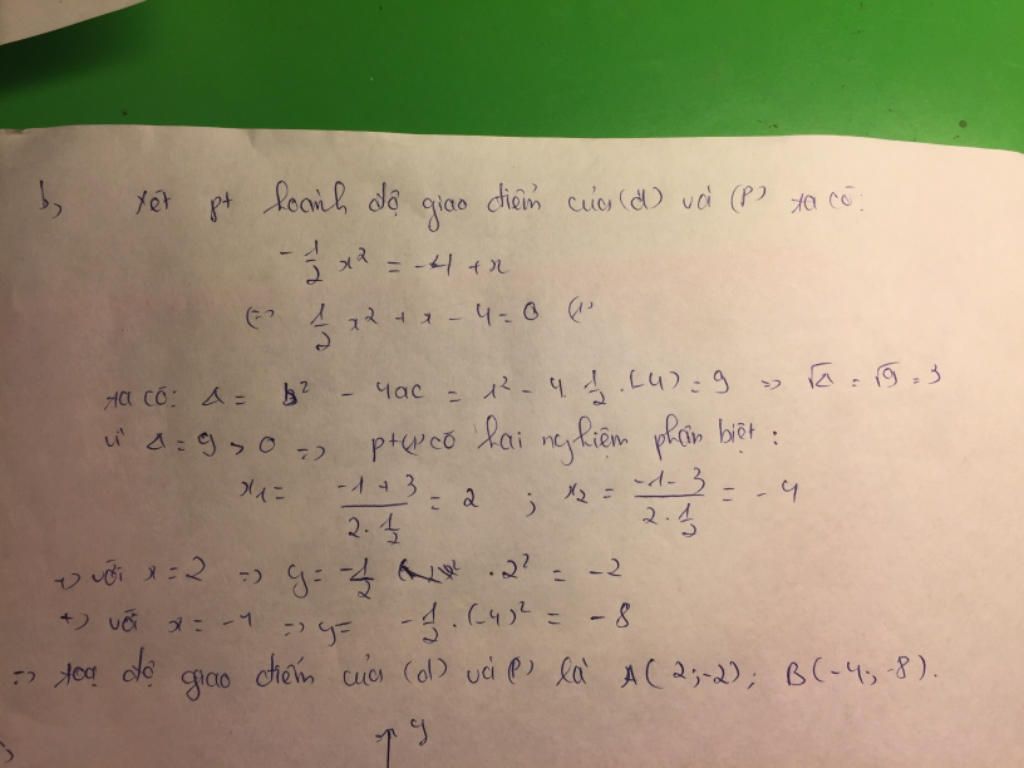 b, xét pt hoành độ giao điểm của (d) và (P) ta có:
-1/2 x² = -4 + x
(=) 1/2 x² + x - 4 = 0 (1)
ta có: Δ = b² - 4ac = 1² - 4. 1/2 . (-4) = 9 => √Δ = √9 = 3
vì Δ = 9 > 0 => pt (1) có hai nghiệm phân biệt:
x₁ = (-1 + 3)/(2 . 1/2) = 2 ; x₂ = (-1 - 3)/(2 . 1/2) = -4
+) với x = 2 => y = -1/2 . 2² = -2
+) với x = -4 => y = -1/2 . (-4)² = -8
=> toạ độ giao điểm của (d) và (P) là A(2;-2); B(-4;-8).
y